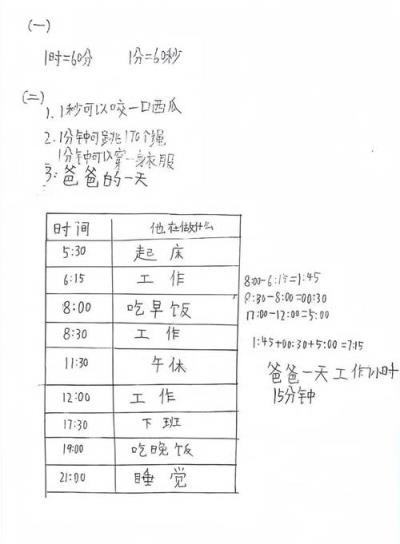 (一)
1时=60分 1分=60秒
(二)
1. 1秒可以咬一口西瓜
2. 1分钟可跳170个绳
1分钟可以穿一身衣服
3: 爸爸的一天
时间 他在做什么
5:30 起床
6:15 工作
8:00 吃早饭
8:30 工作
11:30 午休
12:00 工作
17:30 下班
19:00 吃晚饭
21:00 睡觉
8:00-6:15=1:45
8:30-8:00=00:30
17:00-12:00=5:00
1:45+00:30+5:00=7:15
爸爸一天工作7小时
15分钟